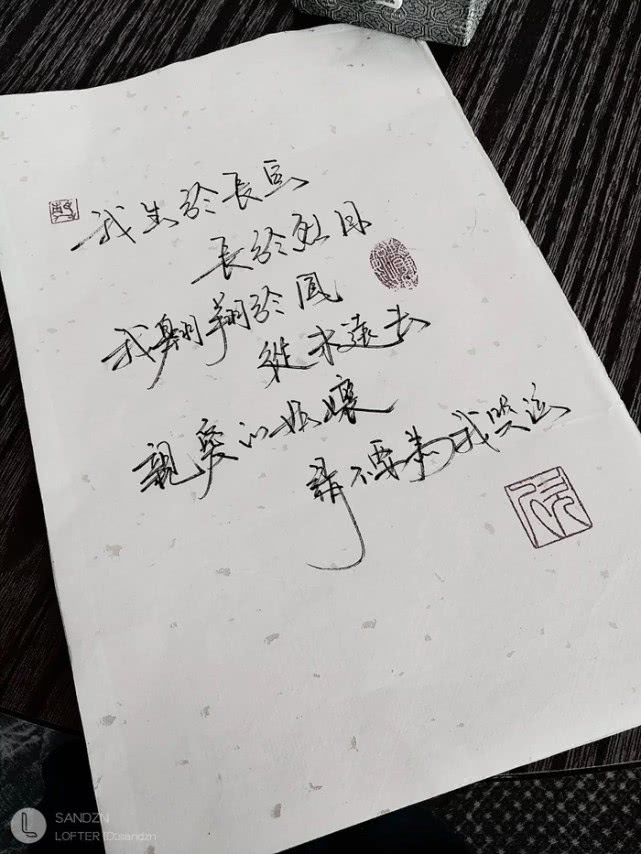 我生於長空
長於烈日
我翱翔於風
從未遠去
親愛的姑孃
請不要為我哭泣
SANDZN
LOFTER ID:sandzn